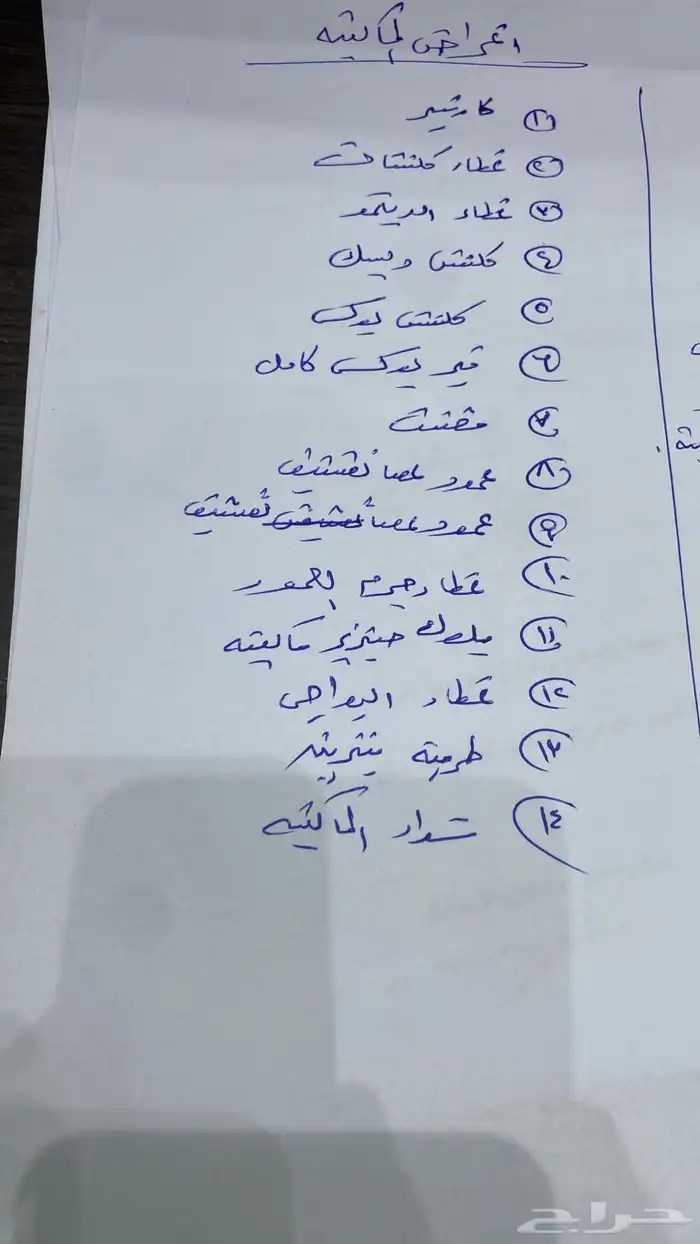 اغراض المكينه
١ كارتير
٢ غطاء كلتشات
٣ غطاء الديتمو
٤ كلتش ديسك
٥ كلتش بوكس
٦ قير بوكس كامل
٧
٨ عمود عصا تعشيق
٩ عمود عصا تعشيق تعشيق
١٠ غطاء العمود
١١ بلوك جنزير مكينه
١٢ غطاء البواجي
١٣ طرمبة بنزين
١٤ شداد المكينه
حراج